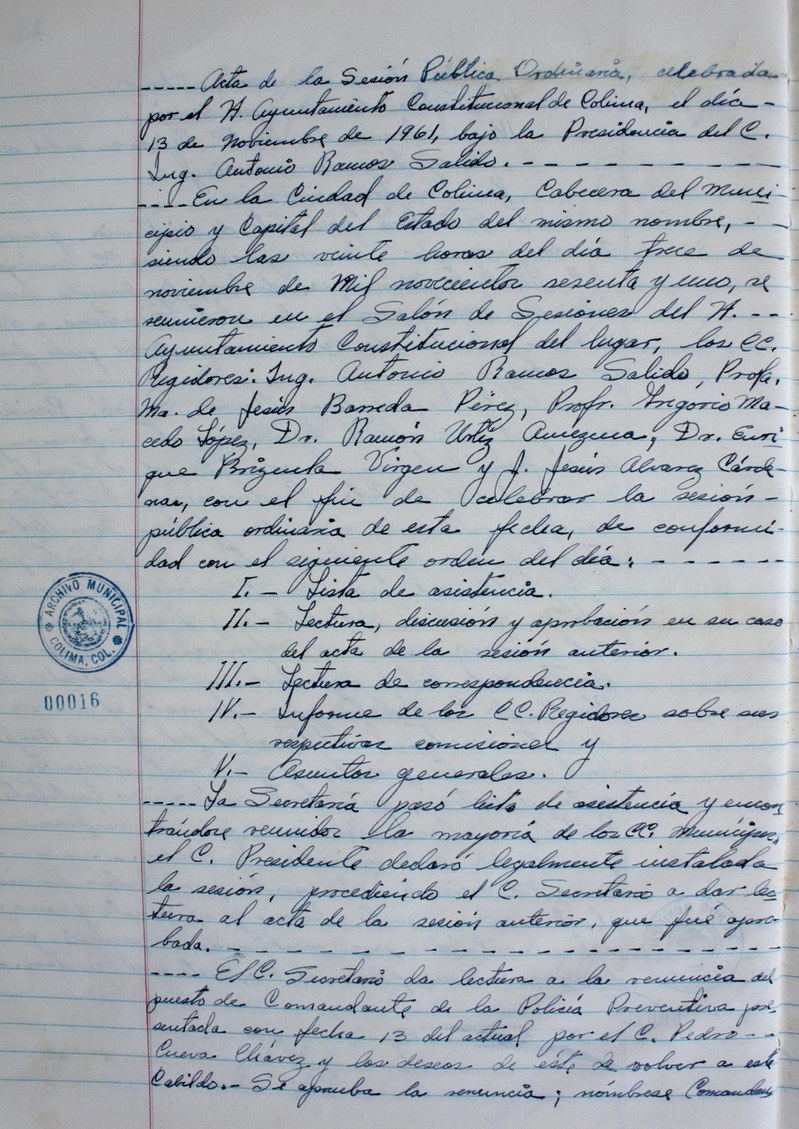 ----- Acta de la Sesión Pública Ordinaria, celebrada
por el H. Ayuntamiento Constitucional de Colima, el día -
13 de noviembre de 1961, bajo la Presidencia del C.
Ing. Antonio Ramos Salido. - - - - - - - - -
----- En la Ciudad de Colima, Cabecera del Muni-
cipio y Capital del Estado del mismo nombre, -
siendo las veinte horas del día trece de
noviembre de Mil novecientos sesenta y uno, se
reunieron en el Salón de Sesiones del H. --
Ayuntamiento Constitucional del lugar, los CC.
Regidores: Ing. Antonio Ramos Salido, Profa.
Ma. de Jesús Barreda Pérez, Profr. Gregorio Ma-
cedo López, Dr. Ramón Urtiz Amezcua, Dr. Enri-
que Brizuela Virgen y J. Jesús Alvarez Cárde-
nas, con el fin de celebrar la sesión -
pública ordinaria de esta fecha, de conformi-
dad con el siguiente orden del día: - - - - - -
I. - Lista de asistencia.
II. - Lectura, discusión y aprobación en su caso
del acta de la sesión anterior.
III.- Lectura de correspondencia.
IV.- Informe de los CC. Regidores sobre sus
respectivas comisiones y
V.- Asuntos generales.
----- La Secretaría pasó lista de asistencia y encon
trándose reunidos la mayoría de los CC. Munícipes,
el C. Presidente declaró legalmente instalada
la sesión, procediendo el C. Secretario a dar lec
tura al acta de la sesión anterior, que fué apro-
bada. - - - - - - - - - - - - - - - -
---- El C. Secretario da lectura a la renuncia del
puesto de Comandante de la Policía Preventiva pre
sentada con fecha 13 del actual por el C. Pedro --
Cueva Chávez y los deseos de éste de volver a este
Cabildo.- Se aprueba la renuncia; nómbrese Comandan
ARCHIVO MUNICIPAL
COLIMA, COL.
00016